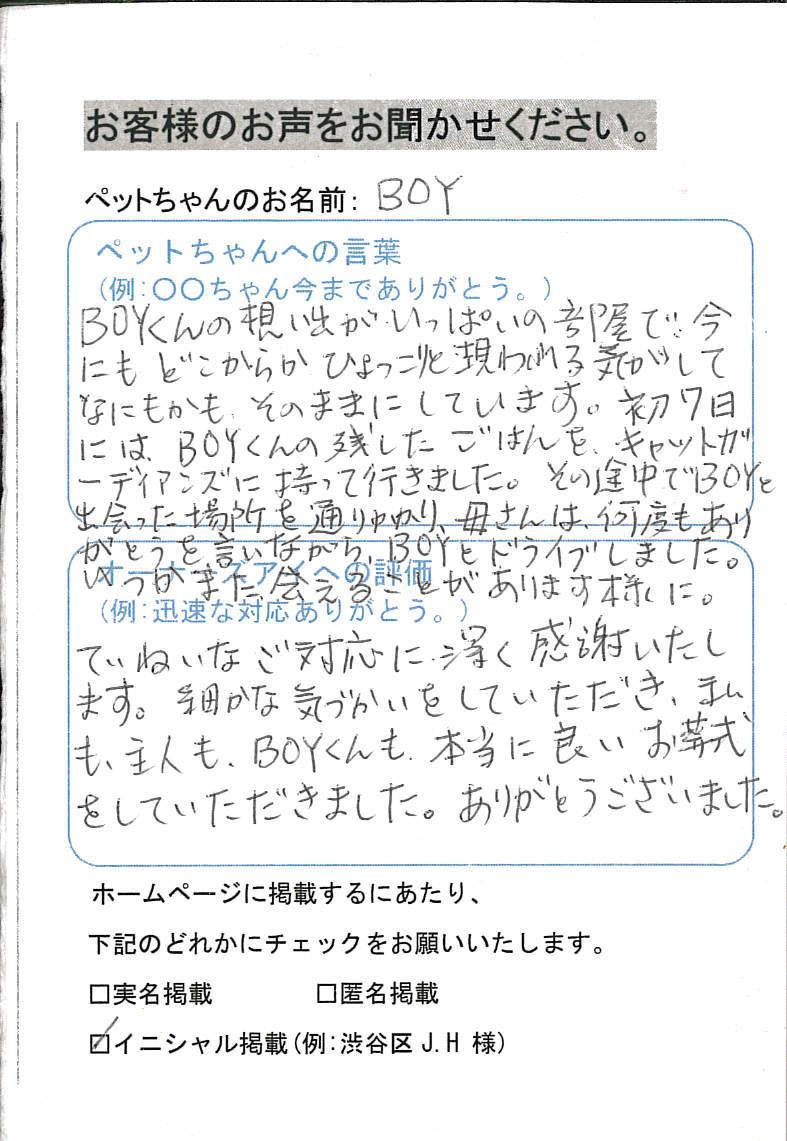 お客様のお声をお聞かせください。
ペットちゃんのお名前: BOY
ペットちゃんへの言葉
(例:〇〇ちゃん今までありがとう。)
BOYくんの想い出がいっぱいの部屋で、今
にもどこからかひょっこりと現われる気がして
なにもかも、そのままにしています。初7日
には、BOYくんの残したごはんを、キャットガ
ーディアンズに持って行きました。その途中でBOYと
出会った場所を通りゆかり、母さんは、何度もあり
がとうを言いながら、BOYとドライブしました。
いつかまた、会えることがあります様に。
オーナーズアイへの評価
(例:迅速な対応ありがとう。)
ていねいなご対応に、深く感謝いたし
ます。細かな気づかいをしていただき、私
も、主人も、BOYくんも、本当に良いお葬式
をしていただきました。ありがとうございました。
ホームページに掲載するにあたり、
下記のどれかにチェックをお願いいたします。
□実名掲載 □匿名掲載
☑イニシャル掲載(例:渋谷区 J.H 様)